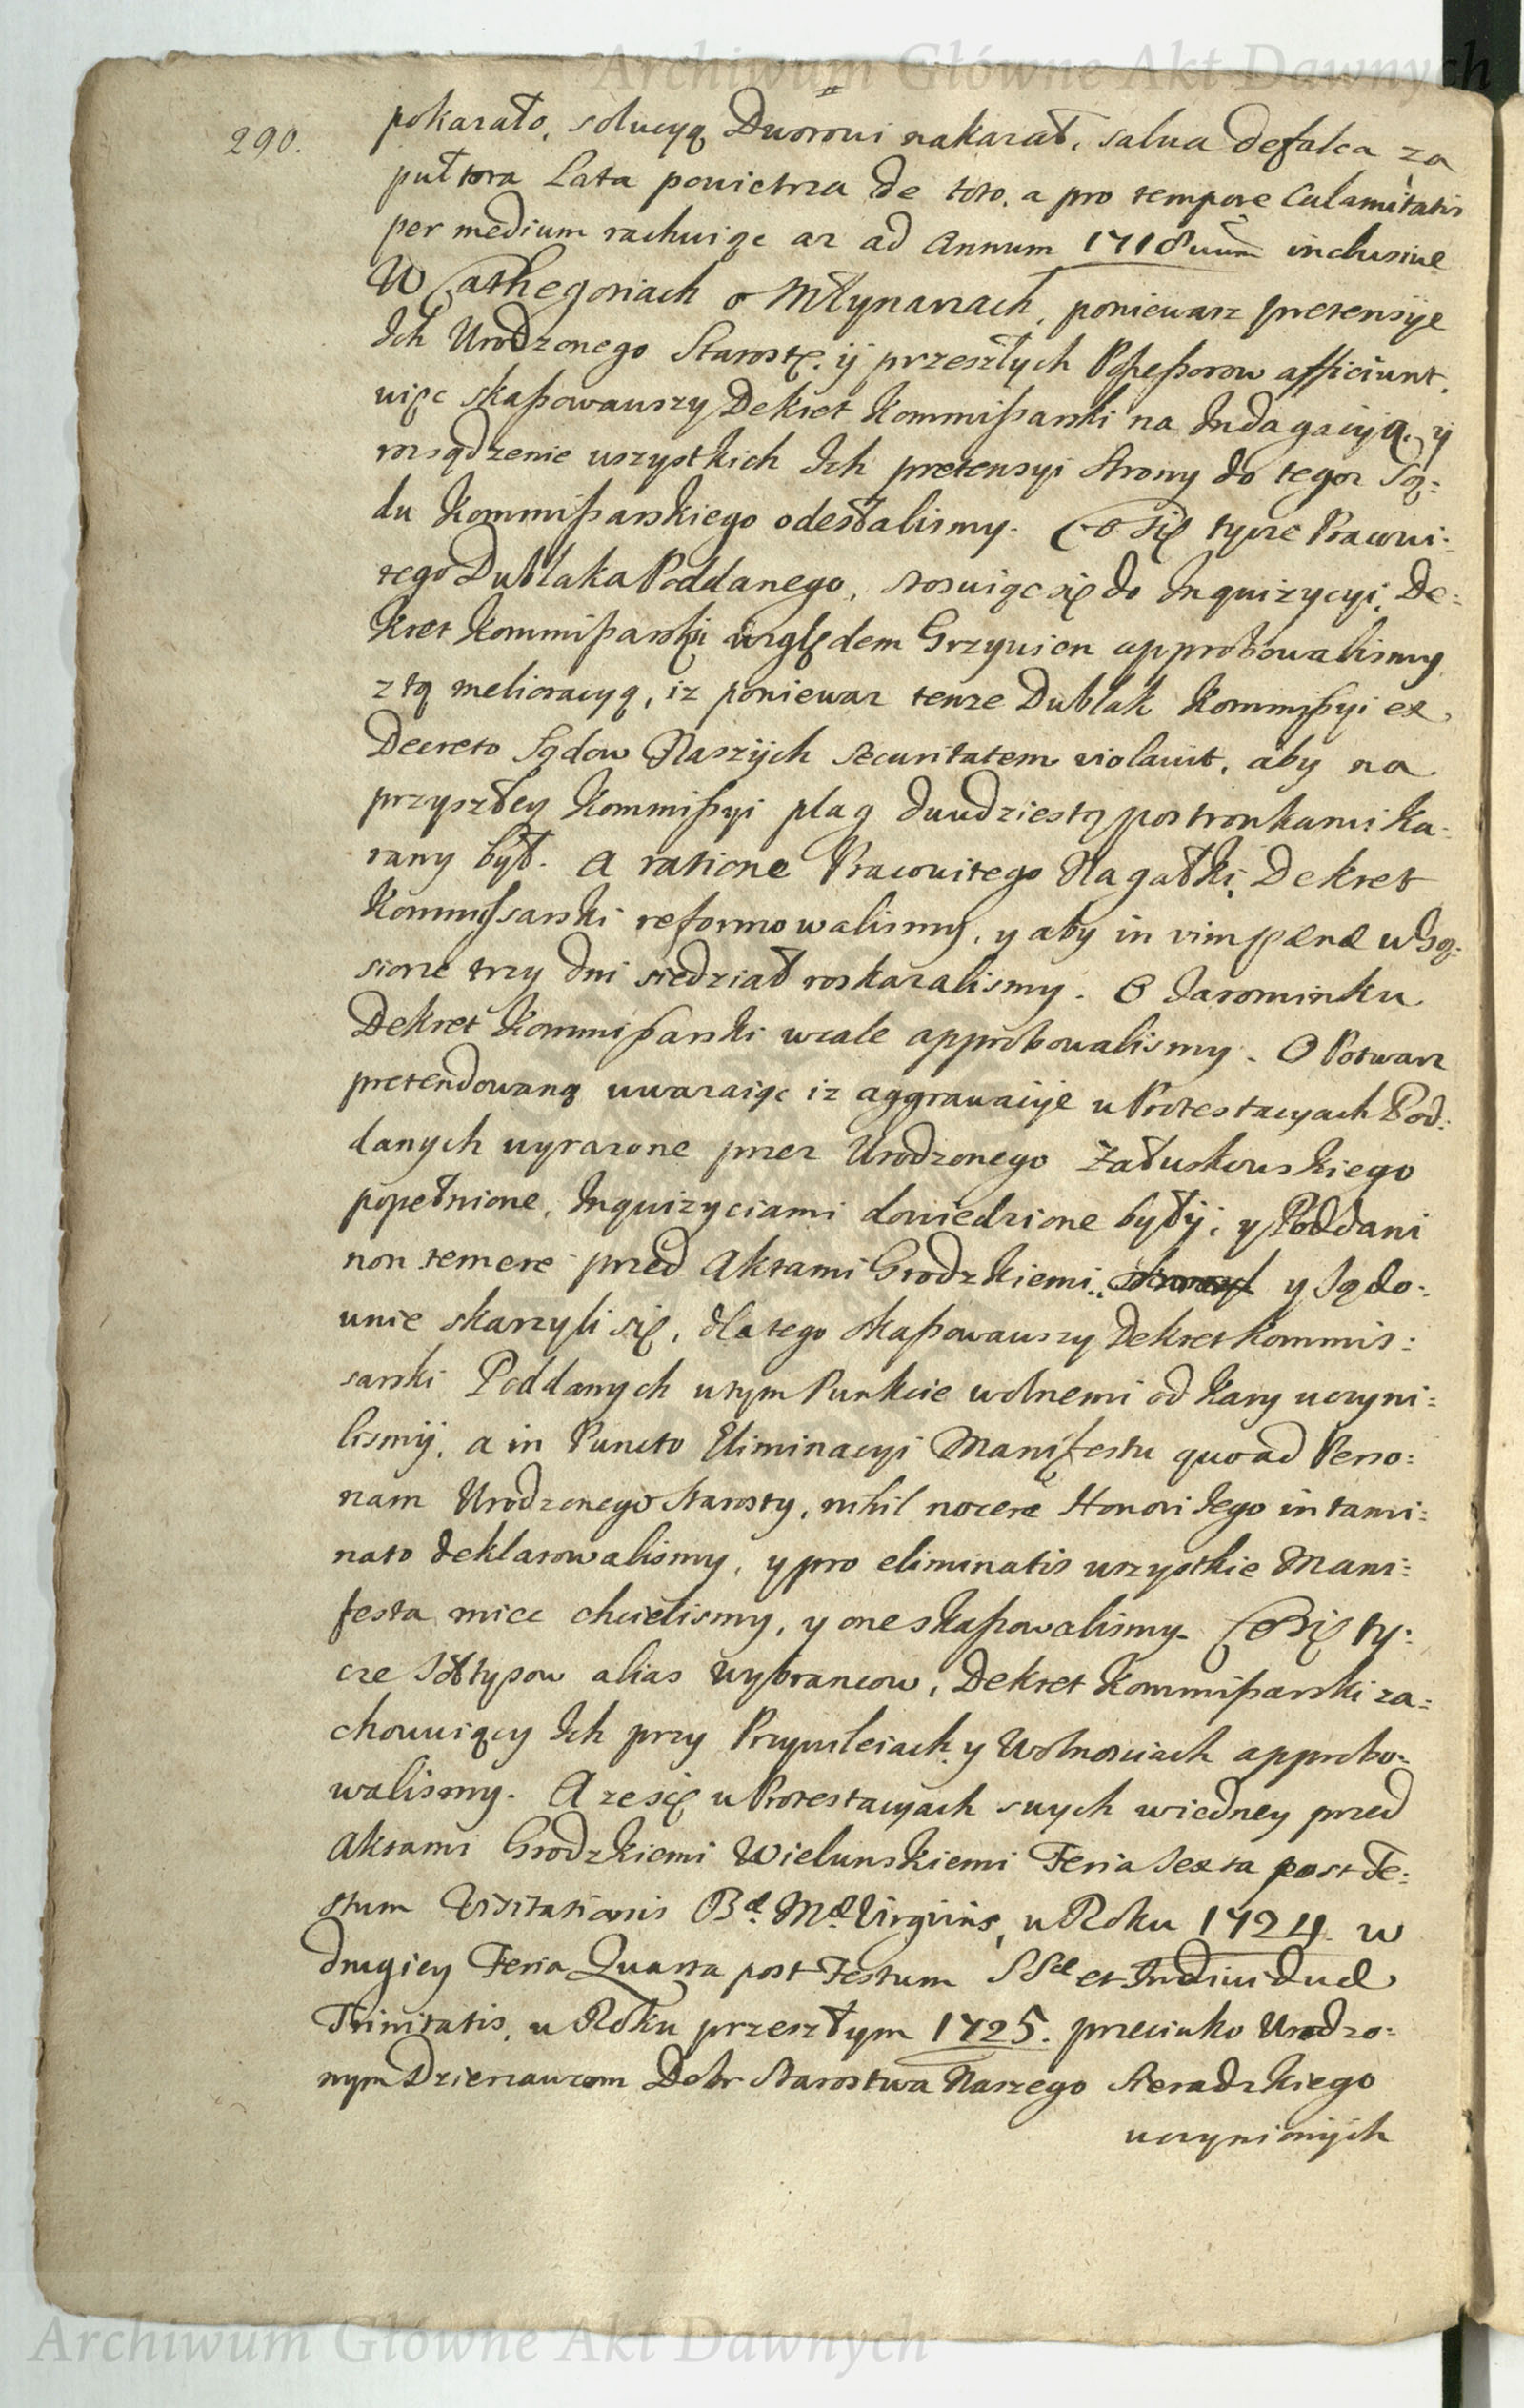 Archiwum Główne Akt Dawnych
290.
pokazało, solucyą Dworowi nakazał, salva defalca za
pułtora Lata powietrza de toto, a pro tempore Calamitatis
per medium rachuiąc az ad Annum 1718vum inclusive
W Cathegoriach o Młynarzach, poniewasz pretensye
Ich Urodzonego Starostę, ÿ przeszłych Possessorow afficiunt,
więc skassowawszy Dekret Kommissarski na Indagacyią, ÿ
rozsądzenie wszystkich Ich pretensyi Strony do tegoz Są:
du Kommissarskiego odesłalismy. Co się tycze Pracowi:
tego Dublaka Poddanego, stosuiąc się do Inquizycyi, De:
kret Kommissarski względem Grzywien approbowalismy
z tą melioracyą, iz poniewaz tenze Dublak Kommissyi ex
Decreto Sądow Naszÿch securitatem violavit, aby na
przyszłey Kommissyi plag dwudziestą postronkami ka:
rany był. A ratione Pracowitego Nagałki, Dekret
Kommissarski reformowalismy, y aby in vim pænæ w Gą:
siorze trzy dni siedział roskazalismy. O Jarominku
Dekret Kommissarski wcale approbowalismy. O Potwarz
pretendowaną uwazaiąc iz aggrawacÿe w Protestacyach Pod:
danych wyrazone przez Urodzonego Załuskowskiego
popełnione, Inquizyciami dowiedzione byłÿ, y Poddani
non temere przed Aktami Grodzkiemi y Sądo:
wnie skarzyli się, dlatego skassowawszy Dekret Kommis:
sarski Poddanych w tym Punkcie wolnemi od kary uczyni:
lismÿ, a in Puncto Eliminacyi Manifestu quoad Perso:
nam Urodzonego Starosty, nihil nocere Honori Jego intami:
nato deklarowalismy, y pro eliminatis wszystkie Mani:
festa miec chcielismy, y one skassowalismy. Co się ty:
cze Sołtysow alias Wybrancow, Dekret Kommissarski za:
chowuiący Ich przy Przywileiach y Wolnosciach approbo:
walismy. A ze się w Protestacyach swych w iedney przed
Aktami Grodzkiemi Wielunskiemi Feria Sexta post Fe:
stum Visitationis Bæ Mæ Virginis, w Roku 1724. w
drugiey Feria Quarta post Festum SSæ et Individuæ
Trinitatis, w Roku przeszłym 1725. przeciwko Urodzo:
nym Dzierzawcom Dobr Starostwa Naszego Sieradzkiego
uczynionÿch
Archiwum Główne Akt Dawnych